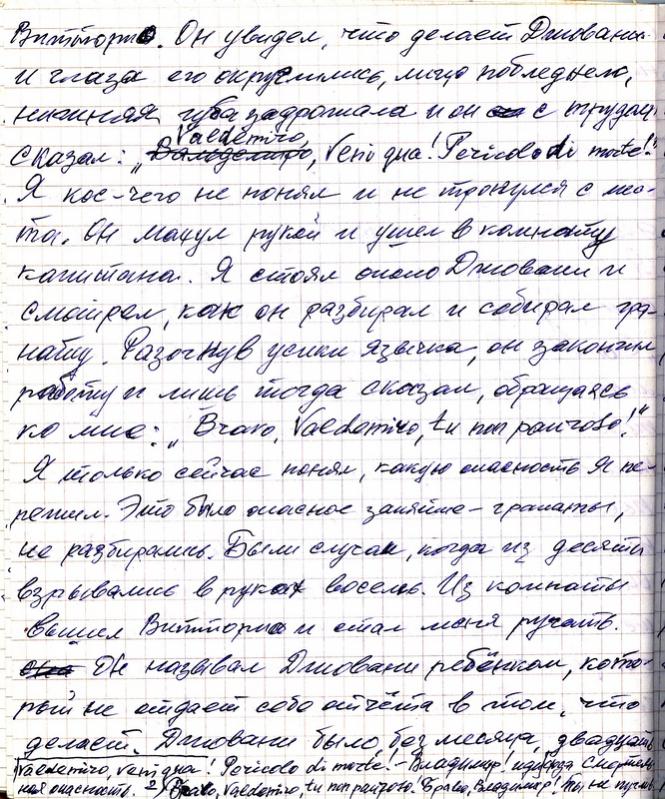 Витторио. Он увидел, что делает Джовани
и глаза его округлились, лицо побледнело,
нижняя губа задрожала и он с трудом
Valdemiro,
сказал: „Володемиро, Veni qua! Pericolo di morte!"
Я кое-чего не понял и не тронулся с мес-
та. Он махнул рукой и ушел в комнату
капитана. Я стоял около Джовани и
смотрел, как он разбирал и собирал гра-
нату. Разогнув усики язычка, он закончил
работу и лишь тогда сказал, обращаясь
ко мне: „Bravo, Valdemiro, tu non pauroso!"
Я только сейчас понял, какую опасность я пе-
режил. Это было опасное занятие - гранаты,
не разбирались. Были случаи, когда из десяти
взрывались в руках восемь. Из комнаты
вышел Витторио и стал меня ругать.
Он называл Джовани ребёнком, кото-
рый не отдает себе отчёта в том, что
делает. Джовани было, без месяца, двадцать
Valdemiro, veni qua! Pericolo di morte! - Владимир, иди сюда Смертель
ная опасность. 2) Bravo, Valdemiro, tu non pauroso. Браво, Владимир! Ты не